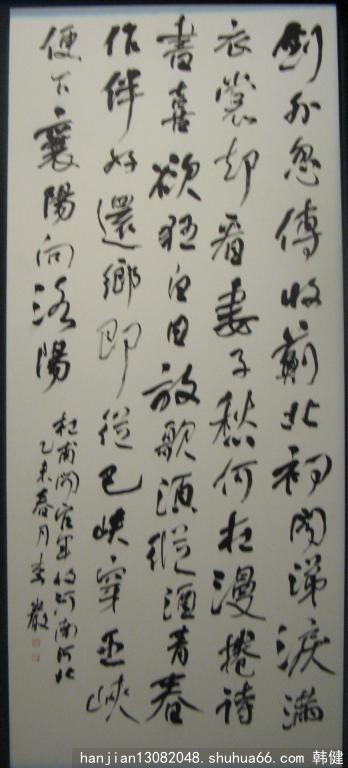 劍外忽傳收薊北初聞涕淚滿
衣裳却看妻子愁何在漫捲詩
書喜欲狂白日放歌須縱酒青春
作伴好還鄉即從巴峽穿巫峽
便下襄陽向洛陽
杜甫聞官軍收河南河北
乙未春月李
hanjian13082048. shuhua66. com 韩健